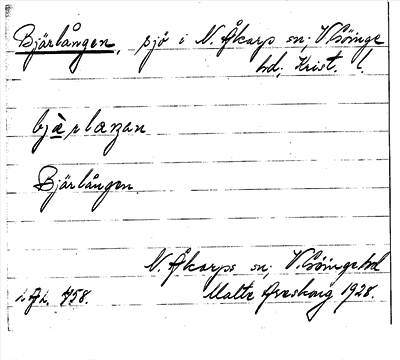 Bjärlången, sjö i N. Åkarps sn; V. Göinge
hd; Krist. l.
bjær laŋan
Bjärlången
N. Åkarps sn; V. Göinge hd
Malte Areskoug 1928.